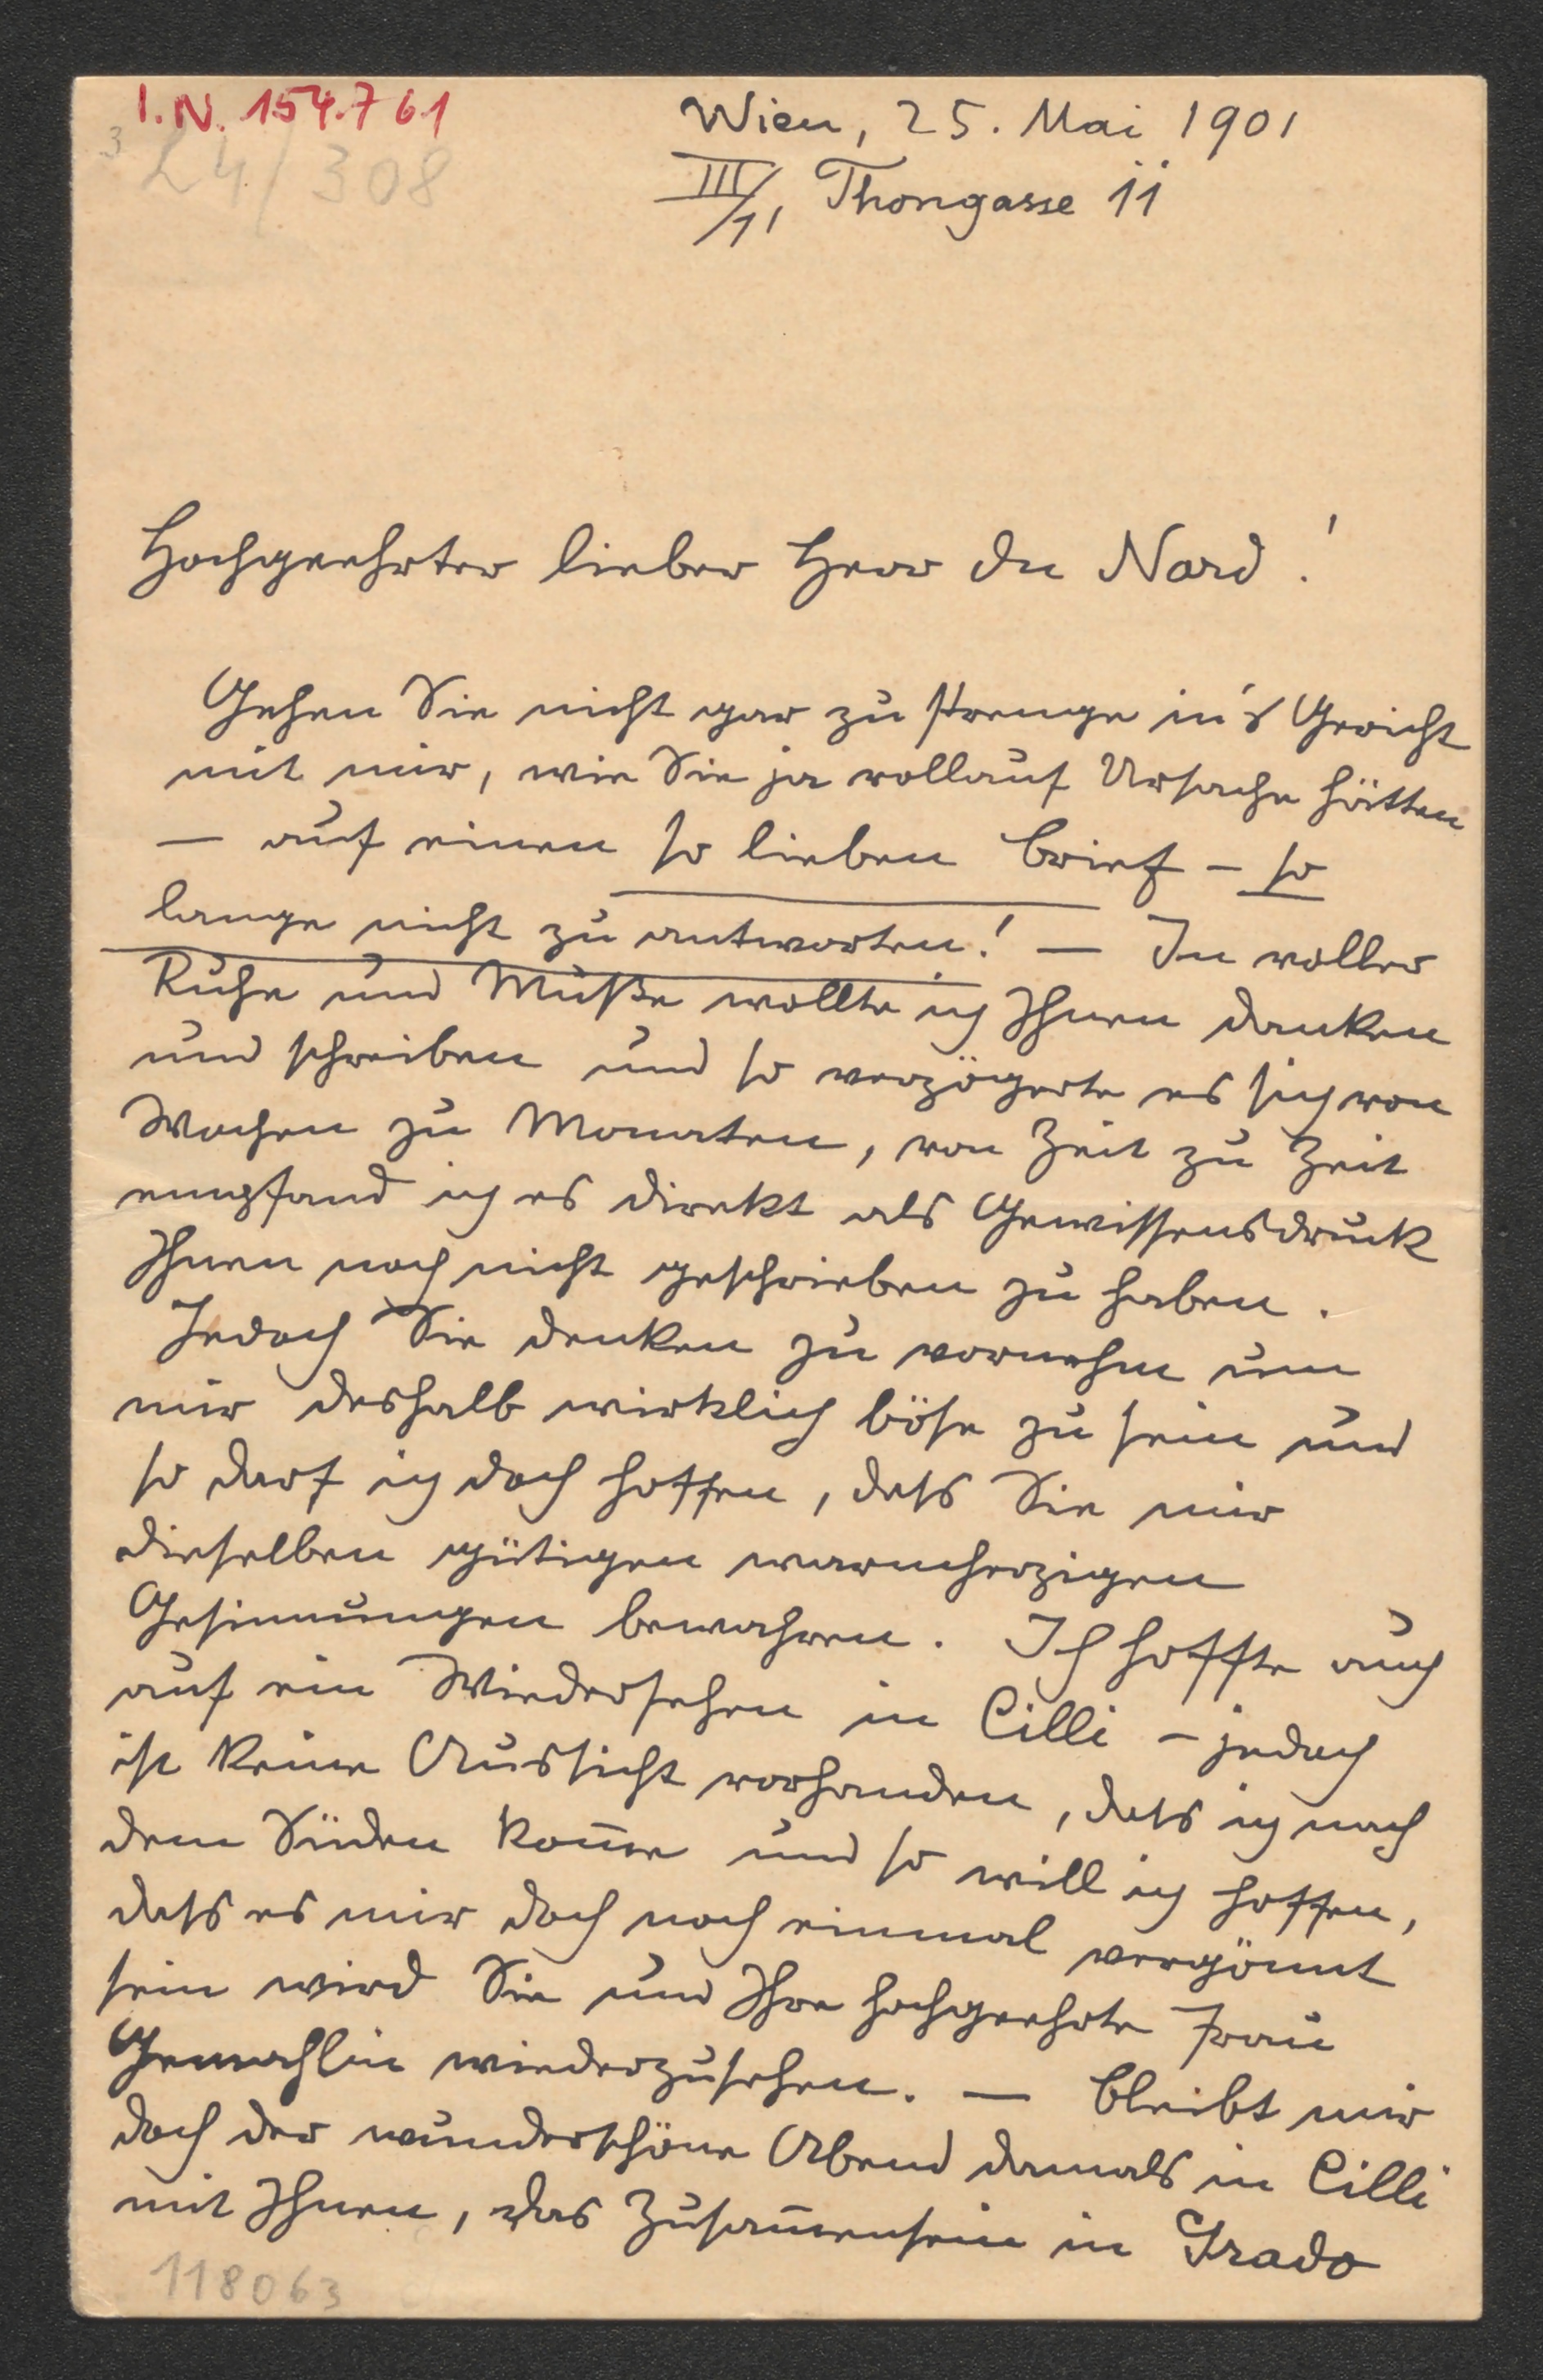 I.N. 154.761
3
24/308
Wien, 25. Mai 1901
III/1, Thongasse 11
Hochgeehrter lieber Herr du Nord!
Gehen Sie nicht gar zu strenge in's Gericht
mit mir, wie Sie ja vollauf Ursache hätten
— auf einen so lieben Brief – so
lange nicht zu antworten! — In voller
Ruhe und Muße wollte ich Ihnen danken
und schreiben und so verzögerte es sich von
Wochen zu Monaten, von Zeit zu Zeit
empfand ich es direkt als Gewissensdruck
Ihnen noch nicht geschrieben zu haben.
Jedoch Sie denken zu vornehm um
mir deshalb wirklich böse zu sein und
so darf ich doch hoffen, dass Sie mir
dieselben gütigen warmherzigen
Gesinnungen bewahren. Ich hoffte auch
auf ein Wiedersehen in Cilli – jedoch
ist keine Aussicht vorhanden, dass ich nach
dem Süden kom̅e und so will ich hoffen,
dass es mir doch noch einmal vergönnt
sein wird Sie und Ihre hochgeehrte Frau
Gemahlin wiederzusehen. — Bleibt mir
doch der wunderschöne Abend damals in Cilli
mit Ihnen, das Zusam̅ensein in Grado
118063